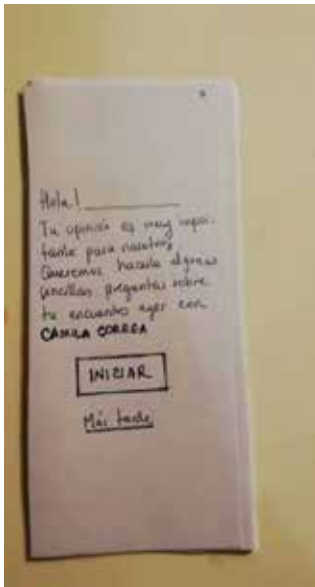 Hola! ________
Tu opinión es muy impor-
tante para nosotros
Queremos hacerle algunas
sencillas preguntas sobre
tu encuentro ayer con
CAMILA CORREA
INICIAR
Más tarde